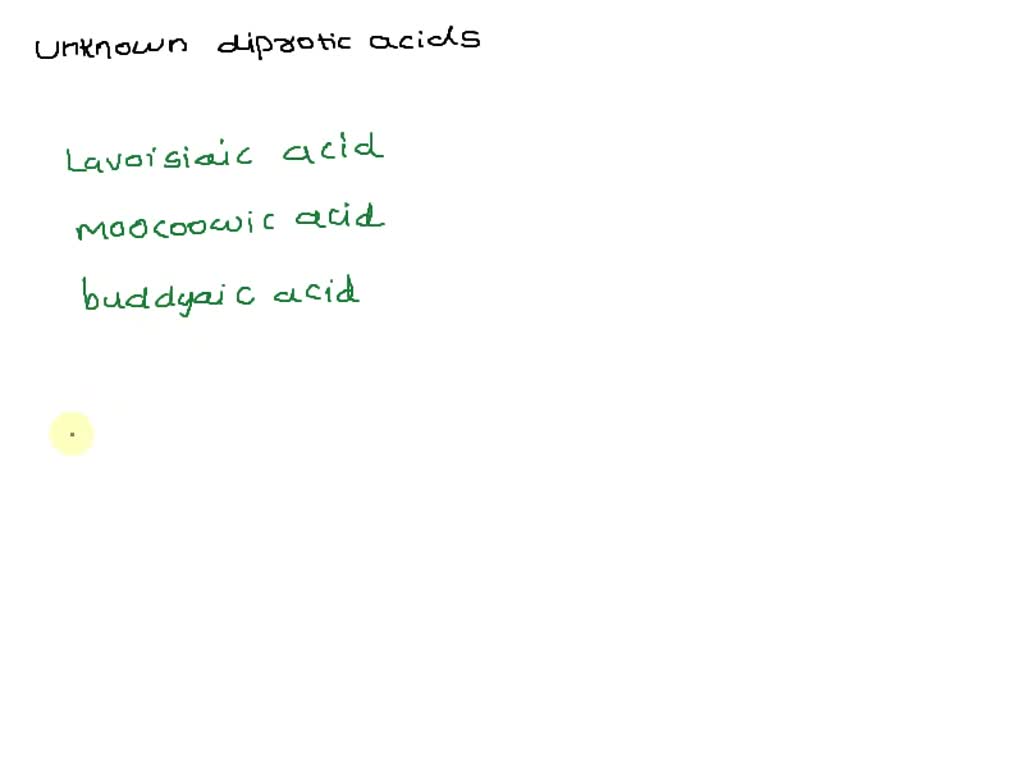 Unknown diprotic acids
Lavoisiaic acid
moocoowic acid
buddyaic acid